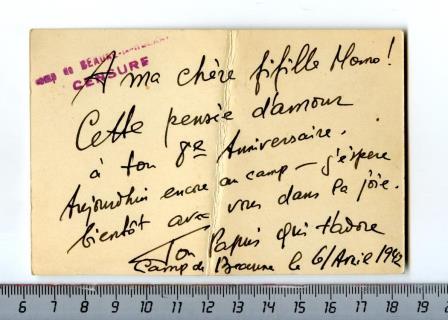 Camp de BEAUNE-la-ROLANDE
CENSURE
A ma chère fifille Momo!
Cette pensée d'amour
à ton 8e Anniversaire.
Aujourdhui encore au camp - j'éspere
bientôt avec vous dans la joie.
Ton Papus qui t'adore
Camp de Beaune le 6/Avril 1942
6 7 8 9 10 11 12 13 14 15 16 17 18 19